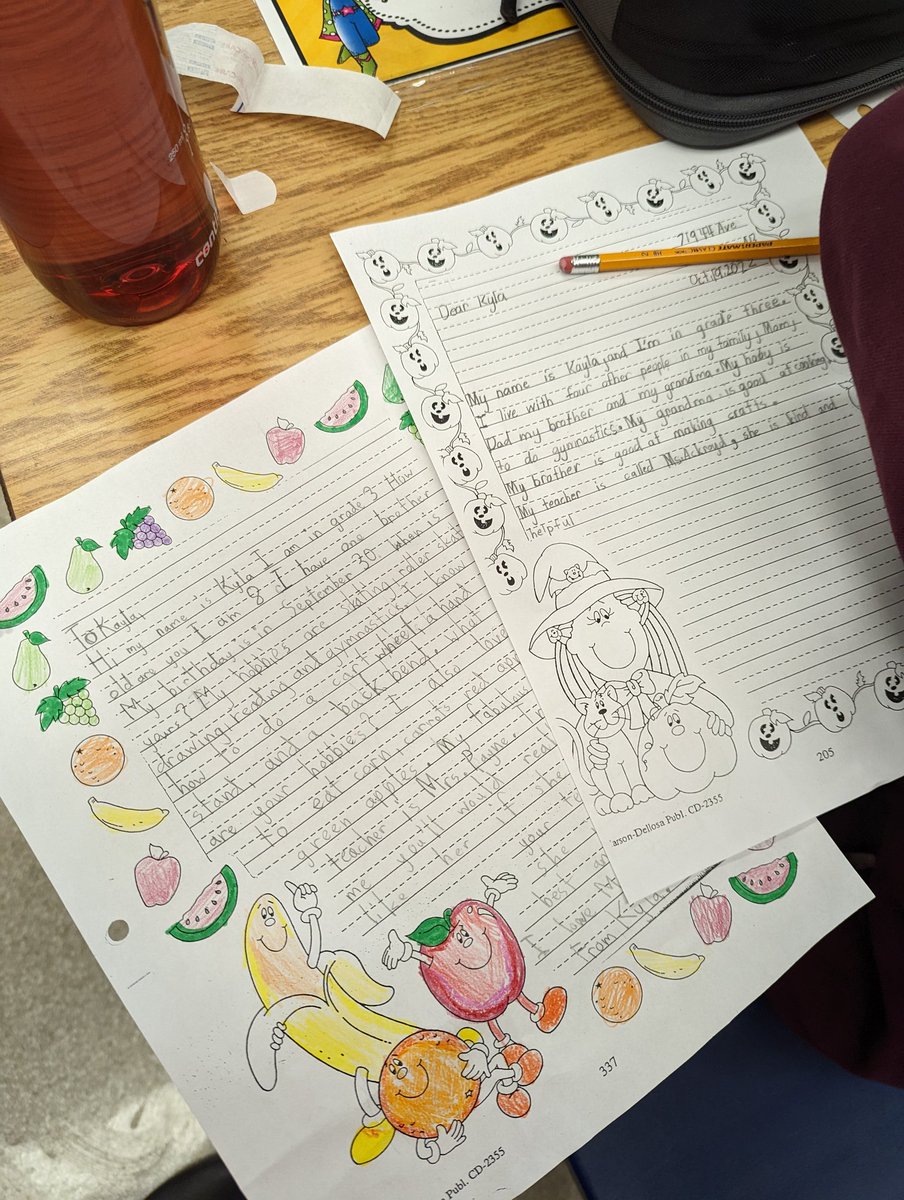 250 ml
cont
PAPERMATE CLASSIC HB 2
719 44 Ave
Oct 19 202
Dear Kyla
My name is Kayla, and I'm in grade three.
I live with four other people in my family, Mom,
Dad my brother and my grandma. My hobby is
to do gymnastics. My grandma is good at cooking
My brother is good at making crafts.
My teacher is called Ms. Ackroyd, she is kind and
helpful
205
arson-Dellosa Publ. CD-2355
To Kayla,
Hi, my name is Kyla I am in grade 3 How
old are you I am 8 I have one brother
My birthday is in September 30 when is
yours? My hobbies are skating roller skat
drawing, reading and gymnastics. I know
how to do a cartwheel, a hand
stand, and a back bend. What
are your hobbies? I also love
to eat corn, carrots red app
green apples My fabulous
teacher is Mrs. Payne.
me you'll would real
like her if she
your te
she
best an
I love
From Kyla
337
Publ. CD-2355